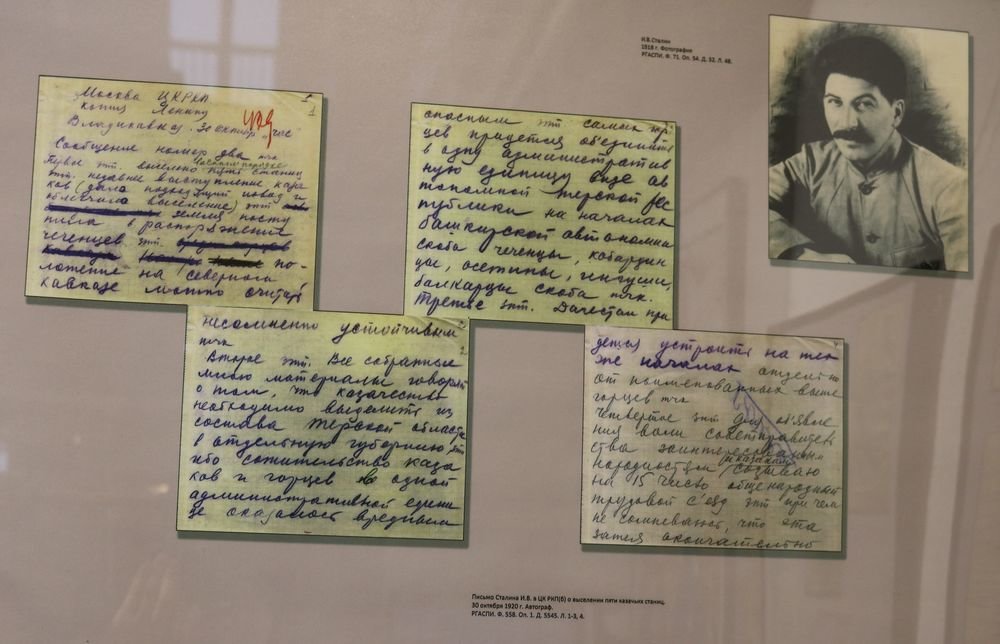 И.В.Сталин
1918 г. Фотография
РГАСПИ. Ф. 71. Оп. 54. Д. 52. Л. 48.
1
Москва ЦКРКП
копия Ленину
Владикавказ. 30 октябр час
Сообщение номер два тчк
Первое зпт. выселено пять станиц
зпт. недавнее выступление каза
ков (дало подходящий повод и
облегчило выселение) зпт
земля посту
пила в распоряжение
чеченцев зпт. по-
ложение на северном
кавказе можно считать
2
несомненно устойчивым
тчк
Второе зпт. Все собранные
мною материалы говорят
о том, что казачество
необходимо выделить из
состава терской области
в отдельную губернию зпт
ибо сожительство каза
ков и горцев в одной
административной едини
це оказалось вредным
опасным зпт самих гор
цев придется объединить
в одну административ
ную единицу виде ав
тономной терской рес
публики на началах
башкирской автономии
скоба чеченцы, кабардин
цы, осетины, ингуши,
балкарцы скоба тчк.
Третье зпт. Дагестан при
4
дется устроить на тех
же началах отдельно
от поименованных выше
горцев тчк
Четвертое зпт для объявле
ния воли советправитель
ства заинтересованным
и казакам
народностям созываю
на 15 число общенародный
трудовой съезд зпт при чем
не сомневаюсь, что эта
затея окончательно
Письмо Сталина И.В. в ЦК РКП(б) о выселении пяти казачьих станиц.
30 октября 1920 г. Автограф.
РГАСПИ. Ф. 558. Оп. 1. Д. 5545. Л. 1-3, 4.